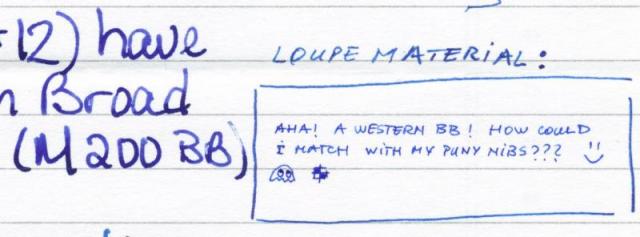 12) have
Broad
(M200 BB)
LOUPE MATERIAL:
AHA! A WESTERN BB! HOW COULD
I MATCH WITH MY PUNY NIBS???